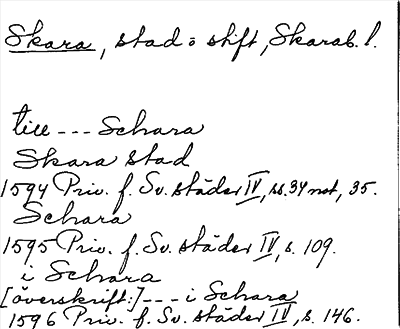 Skara, stad o stift, Skarab. l.
till --- Schara
Skara stad
1594 Priv. f. Sv. städer IV, ss. 34 not, 35.
Schara
1595 Priv. f. Sv. städer IV, s. 109.
i Schara
[överskrift:] --- i Schara
1596 Priv. f. Sv. städer IV, s. 146.